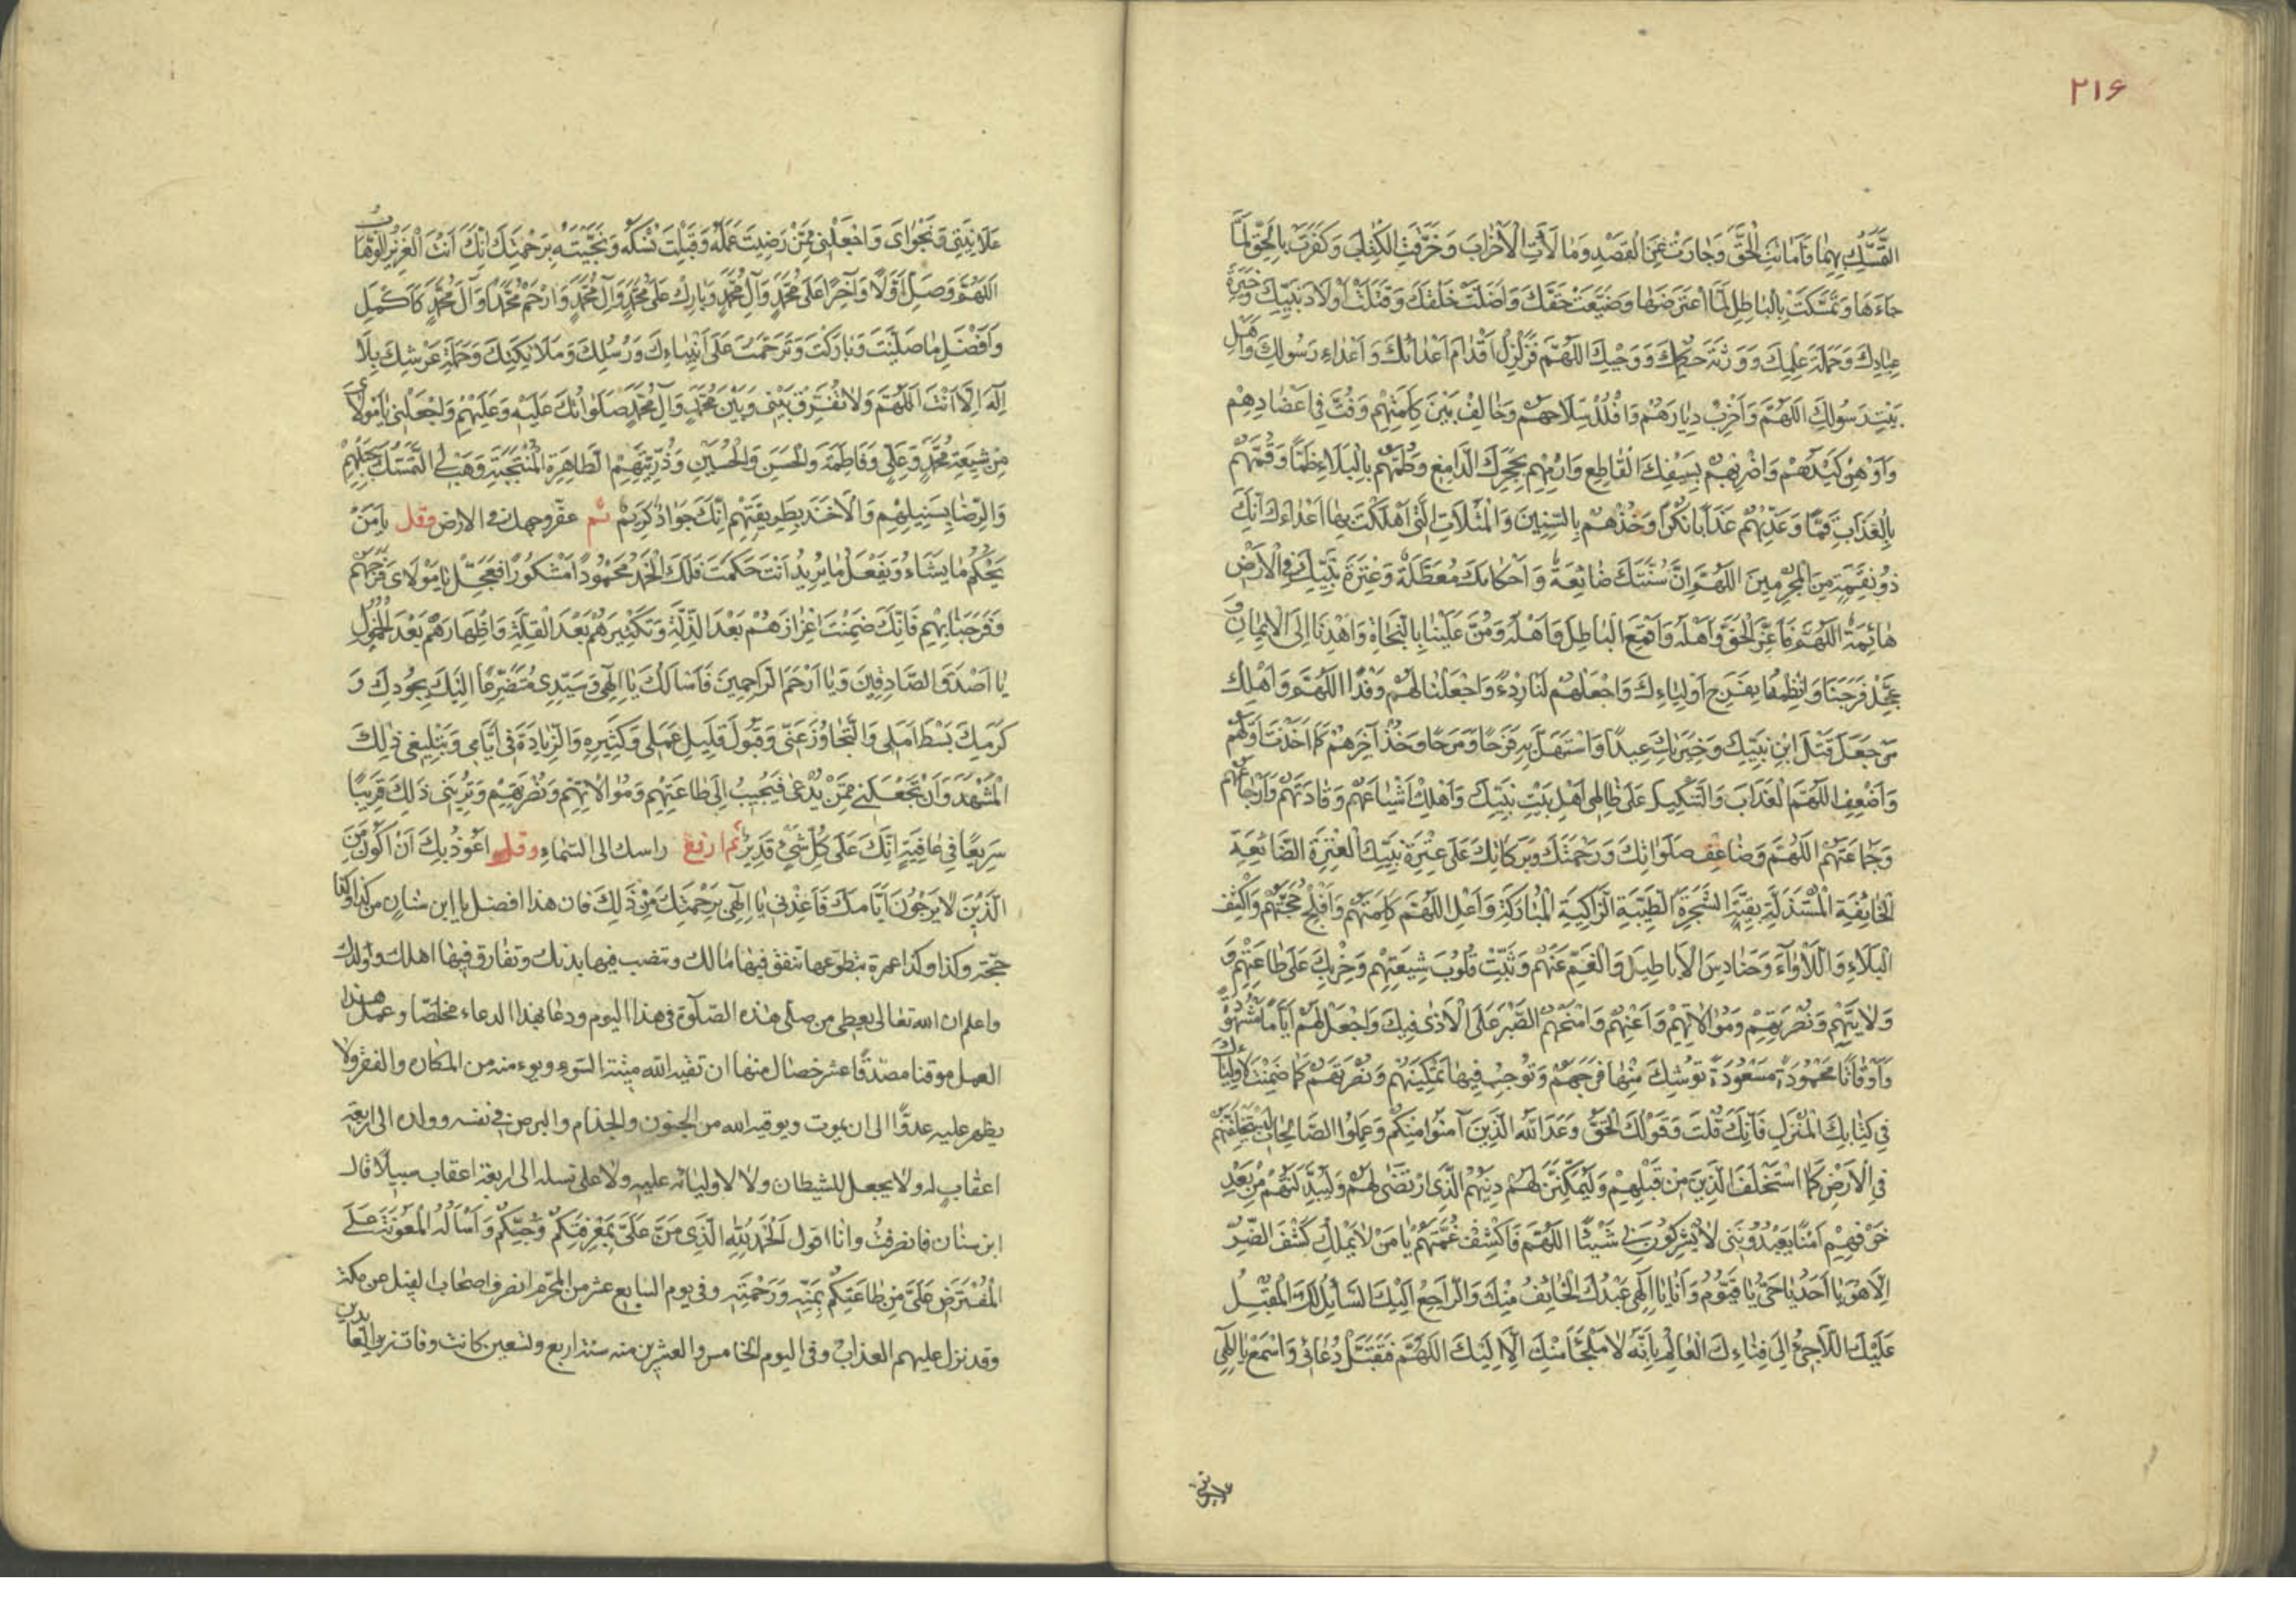 ٢١۶
التَّمَسُّكِ بِهِمَا فَأَمَاتَتِ الْحَقَّ وَجَارَتْ عَنِ الْقَصْدِ وَمَالَأَتِ الْأَحْزَابَ وَحَرَّفَتِ الْكِتَابَ وَكَفَرَتْ بِالْحَقِّ لَمَّا
جَاءَهَا وَتَمَسَّكَتْ بِالْبَاطِلِ لَمَّا اعْتَرَضَهَا وَضَيَّعَتْ حَقَّكَ وَأَضَلَّتْ خَلْقَكَ وَقَتَلَتْ أَوْلَادَ نَبِيِّكَ وَخِيَرَةَ
عِبَادِكَ وَحَمَلَةَ عِلْمِكَ وَوَرَثَةَ حِكْمَتِكَ وَوَحْيِكَ اللَّهُمَّ فَزَلْزِلْ أَقْدَامَ أَعْدَائِكَ وَأَعْدَاءِ رَسُولِكَ وَأَهْلِ
بَيْتِ رَسُولِكَ اللَّهُمَّ وَأَخْرِبْ دِيَارَهُمْ وَافْلُلْ سِلَاحَهُمْ وَخَالِفْ بَيْنَ كَلِمَتِهِمْ وَفُتَّ فِي أَعْضَادِهِمْ
وَأَوْهِنْ كَيْدَهُمْ وَاضْرِبْهُمْ بِسَيْفِكَ الْقَاطِعِ وَارْمِهِمْ بِحَجَرِكَ الدَّامِغِ وَطُمَّهُمْ بِالْبَلَاءِ طَمًّا وَقُمَّهُمْ
بِالْعَذَابِ قَمًّا وَعَذِّبْهُمْ عَذَابًا نُكْرًا وَخُذْهُمْ بِالسِّنِينَ وَالْمَثُلَاتِ الَّتِي أَهْلَكْتَ بِهَا أَعْدَاءَكَ إِنَّكَ
ذُو نِقْمَةٍ مِنَ الْمُجْرِمِينَ اللَّهُمَّ إِنَّ سُنَّتَكَ ضَائِعَةٌ وَأَحْكَامَكَ مُعَطَّلَةٌ وَعِتْرَةَ نَبِيِّكَ فِي الْأَرْضِ
هَائِمَةٌ اللَّهُمَّ فَأَعِزَّ الْحَقَّ وَأَهْلَهُ وَاقْمَعِ الْبَاطِلَ وَأَهْلَهُ وَمُنَّ عَلَيْنَا بِالنَّجَاةِ وَاهْدِنَا إِلَى الْإِيمَانِ وَ
عَجِّلْ فَرَجَنَا وَانْظِمْهُ بِفَرَجِ أَوْلِيَاءِكَ وَاجْعَلْهُمْ لَنَا رِدْءًا وَاجْعَلْنَا لَهُمْ وَفْدًا اللَّهُمَّ وَأَهْلِكْ
مَنْ جَعَلَ قَتْلَ ابْنِ نَبِيِّكَ وَخِيَرَتِكَ عِيدًا وَاسْتَهَلَّ بِهِ فَرَحًا وَمَرَحًا وَخُذْ آخِرَهُمْ كَمَا أَخَذْتَ أَوَّلَهُمْ
وَأَضْعِفِ اللَّهُمَّ الْعَذَابَ وَالتَّنْكِيلَ عَلَى ظَالِمِي أَهْلِ بَيْتِ نَبِيِّكَ وَأَهْلِكْ أَشْيَاعَهُمْ وَقَادَتَهُمْ
وَجَمَاعَتَهُمْ اللَّهُمَّ وَضَاعِفْ صَلَوَاتِكَ وَرَحْمَتَكَ وَبَرَكَاتِكَ عَلَى عِتْرَةِ نَبِيِّكَ الْعِتْرَةِ الضَّائِعَةِ
الْخَائِفَةِ الْمُسْتَذَلَّةِ بَقِيَّةِ الشَّجَرَةِ الطَّيِّبَةِ الزَّاكِيَةِ الْمُبَارَكَةِ وَأَعْلِ اللَّهُمَّ كَلِمَتَهُمْ وَأَفْلِجْ حُجَّتَهُمْ وَاكْشِفِ
الْبَلَاءَ وَاللَّأْوَاءَ وَحَنَادِسَ الْأَبَاطِيلِ وَالْغَمَّ عَنْهُمْ وَثَبِّتْ قُلُوبَ شِيعَتِهِمْ وَحِزْبِكَ عَلَى طَاعَتِهِمْ وَ
وَلَايَتِهِمْ وَنُصْرَتِهِمْ وَمُوَالَاتِهِمْ وَأَعِنْهُمْ وَامْنَحْهُمُ الصَّبْرَ عَلَى الْأَذَى فِيكَ وَاجْعَلْ لَهُمْ أَيَّامًا مَشْهُودَةً
وَأَوْقَاتًا مَحْمُودَةً مَسْعُودَةً تُوشِكُ مِنْهَا فَرَجَهُمْ وَتُوجِبُ فِيهَا تَمْكِينَهُمْ وَنُصْرَتَهُمْ كَمَا ضَمِنْتَ لِأَوْلِيَائِكَ
فِي كِتَابِكَ الْمُنْزَلِ فَإِنَّكَ قُلْتَ وَقَوْلُكَ الْحَقُّ وَعَدَ اللَّهُ الَّذِينَ آمَنُوا مِنْكُمْ وَعَمِلُوا الصَّالِحَاتِ لَيَسْتَخْلِفَنَّهُمْ
فِي الْأَرْضِ كَمَا اسْتَخْلَفَ الَّذِينَ مِنْ قَبْلِهِمْ وَلَيُمَكِّنَنَّ لَهُمْ دِينَهُمُ الَّذِي ارْتَضَى لَهُمْ وَلَيُبَدِّلَنَّهُمْ مِنْ بَعْدِ
خَوْفِهِمْ أَمْنًا يَعْبُدُونَنِي لَا يُشْرِكُونَ بِي شَيْئًا اللَّهُمَّ فَاكْشِفْ غُمَّتَهُمْ يَا مَنْ لَا يَمْلِكُ كَشْفَ الضُّرِّ
إِلَّا هُوَ يَا أَحَدُ يَا حَيُّ يَا قَيُّومُ وَأَنَا يَا إِلَهِي عَبْدُكَ الْخَائِفُ مِنْكَ وَالرَّاجِعُ إِلَيْكَ السَّائِلُ لَكَ الْمُقْبِلُ
عَلَيْكَ اللَّاجِئُ إِلَى فِنَاءِكَ الْعَالِمُ بِأَنَّهُ لَا مَلْجَأَ مِنْكَ إِلَّا إِلَيْكَ اللَّهُمَّ فَتَقَبَّلْ دُعَائِي وَاسْمَعْ يَا إِلَهِي
علانيتى
عَلَانِيَتِي وَنَجْوَايَ وَاجْعَلْنِي مِمَّنْ رَضِيتَ عَمَلَهُ وَقَبِلْتَ نُسُكَهُ وَنَجَّيْتَهُ بِرَحْمَتِكَ إِنَّكَ أَنْتَ الْعَزِيزُ الْوَهَّابُ
اللَّهُمَّ وَصَلِّ أَوَّلًا وَآخِرًا عَلَى مُحَمَّدٍ وَآلِ مُحَمَّدٍ وَبَارِكْ عَلَى مُحَمَّدٍ وَآلِ مُحَمَّدٍ وَارْحَمْ مُحَمَّدًا وَآلَ مُحَمَّدٍ كَأَكْمَلِ
وَأَفْضَلِ مَا صَلَّيْتَ وَبَارَكْتَ وَتَرَحَّمْتَ عَلَى أَنْبِيَاءِكَ وَرُسُلِكَ وَمَلَائِكَتِكَ وَحَمَلَةِ عَرْشِكَ بِلَا
إِلَهَ إِلَّا أَنْتَ اللَّهُمَّ وَلَا تُفَرِّقْ بَيْنِي وَبَيْنَ مُحَمَّدٍ وَآلِ مُحَمَّدٍ صَلَوَاتُكَ عَلَيْهِ وَعَلَيْهِمْ وَاجْعَلْنِي يَا مَوْلَايَ
مِنْ شِيعَةِ مُحَمَّدٍ وَعَلِيٍّ وَفَاطِمَةَ وَالْحَسَنِ وَالْحُسَيْنِ وَذُرِّيَّتِهِمُ الطَّاهِرَةِ الْمُنْتَجَبَةِ وَهَبْ لِيَ التَّمَسُّكَ بِحَبْلِهِمْ
وَالرِّضَا بِسَبِيلِهِمْ وَالْأَخْذَ بِطَرِيقَتِهِمْ إِنَّكَ جَوَادٌ كَرِيمٌ ثم عفّر وجهك فى الارض وقل يَا مَنْ
يَحْكُمُ مَا يَشَاءُ وَيَفْعَلُ مَا يُرِيدُ أَنْتَ حَكَمْتَ فَلَكَ الْحَمْدُ مَحْمُودًا مَشْكُورًا فَعَجِّلْ يَا مَوْلَايَ فَرَجَهُمْ
وَفَرَجَنَا بِهِمْ فَإِنَّكَ ضَمِنْتَ إِعْزَازَهُمْ بَعْدَ الذِّلَّةِ وَتَكْثِيرَهُمْ بَعْدَ الْقِلَّةِ وَإِظْهَارَهُمْ بَعْدَ الْخُمُولِ
يَا أَصْدَقَ الصَّادِقِينَ وَيَا أَرْحَمَ الرَّاحِمِينَ فَأَسْأَلُكَ يَا إِلَهِي وَسَيِّدِي مُتَضَرِّعًا إِلَيْكَ بِجُودِكَ وَ
كَرَمِكَ بَسْطَ أَمَلِي وَالتَّجَاوُزَ عَنِّي وَقَبُولَ قَلِيلِ عَمَلِي وَكَثِيرِهِ وَالزِّيَادَةَ فِي أَيَّامِي وَتَبْلِيغِي ذَلِكَ
الْمَشْهَدَ وَأَنْ تَجْعَلَنِي مِمَّنْ يُدْعَى فَيُجِيبُ إِلَى طَاعَتِهِمْ وَمُوَالَاتِهِمْ وَنُصْرَتِهِمْ وَتُرِيَنِي ذَلِكَ قَرِيبًا
سَرِيعًا فِي عَافِيَةٍ إِنَّكَ عَلَى كُلِّ شَيْءٍ قَدِيرٌ ثم ارفع راسك الى السّماء وقل اَعُوذُ بِكَ أَنْ أَكُونَ مِنَ
الَّذِينَ لَا يَرْجُونَ أَيَّامَكَ فَأَعِذْنِي يَا إِلَهِي بِرَحْمَتِكَ مِنْ ذَلِكَ فان هذا افضل يا ابن سنان من كذا وكذا
حجّة وكذا وكذا عمرة تتطوّعها تنفق فيها مالك وتنصب فيها بدنك وتفارق فيها اهلك وولدك
واعلم ان الله تعالى يعطى من صلّى هذه الصّلوة فى هذا اليوم ودعا بهذا الدعاء مخلصًا وعمل هذا
العمل موقنا مصدّقًا عشر خصال منها ان تقيه الله ميتة السّوء ويؤمنه من المكاره والفقر ولا
يظهر عليه عدوًّا الى ان يموت ويوقيه الله من الجنون والجذام والبرص فى نفسه وولده الى اربعة
اعقاب له ولا يجعل للشيطان ولا لاوليائه عليه ولا على نسله الى اربعة اعقاب سبيلًا قال
ابن سنان فانصرفت وانا اقول اَلْحَمْدُ لِلَّهِ الَّذِي مَنَّ عَلَيَّ بِمَعْرِفَتِكُمْ وَحُبِّكُمْ وَأَسْأَلُهُ الْمَعُونَةَ عَلَى
الْمُفْتَرَضِ عَلَيَّ مِنْ طَاعَتِكُمْ بِمَنِّهِ وَرَحْمَتِهِ وفى يوم السّابع عشر من المحرّم انصرف اصحاب الفيل عن مكّة
وقد نزل عليهم العذاب وفى اليوم الخامس والعشرين منه سنة اربع وتسعين كانت وفاة زين العابدين